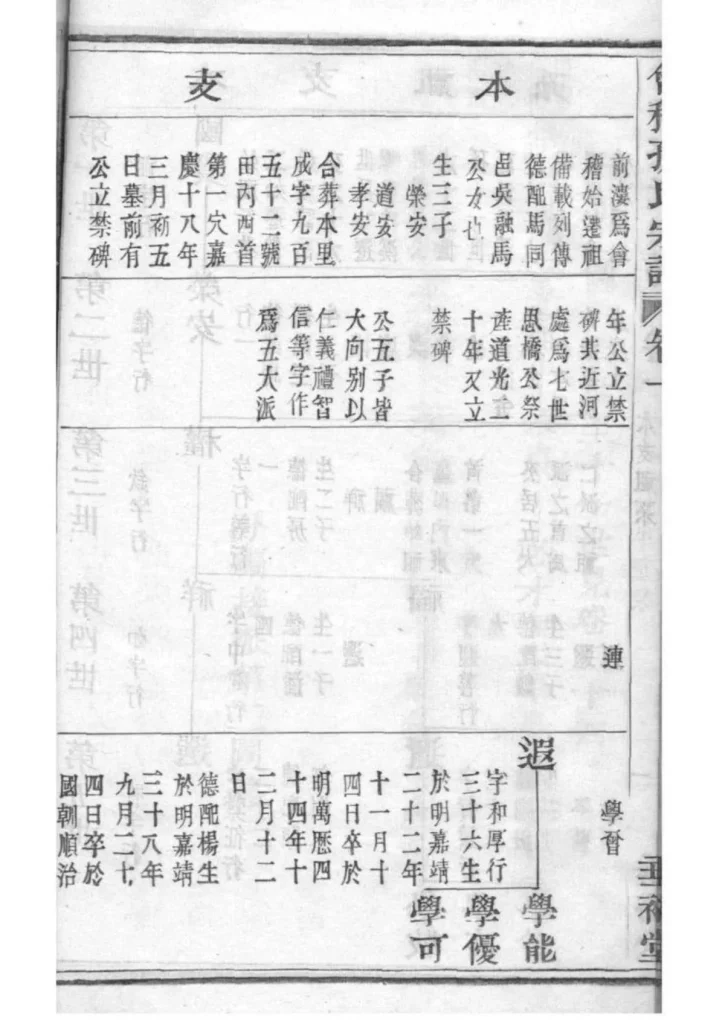 會稽孫氏宗譜 卷一
垂裕堂
本
支
前漊爲會
稽始遷祖
備載列傳
德配馬同
邑吳融馬
公女也
生三子
榮安
道安
孝安
合葬本里
成字九百
五十二號
田內西首
第一穴嘉
慶十八年
三月初五
日墓前有
公立禁碑
年公立禁
碑共近河
處爲七世
思橋公祭
產道光二
十年又立
禁碑
公五子皆
大向别以
仁義禮智
信等字作
爲五大派
連
學晉
遐
字和厚行
三十六生
於明嘉靖
二十二年
十一月十
四日卒於
明萬歷四
十四年十
二月十二
日
德配楊生
於明嘉靖
三十八年
九月二十
四日卒於
國朝順治
學能
學優
學可